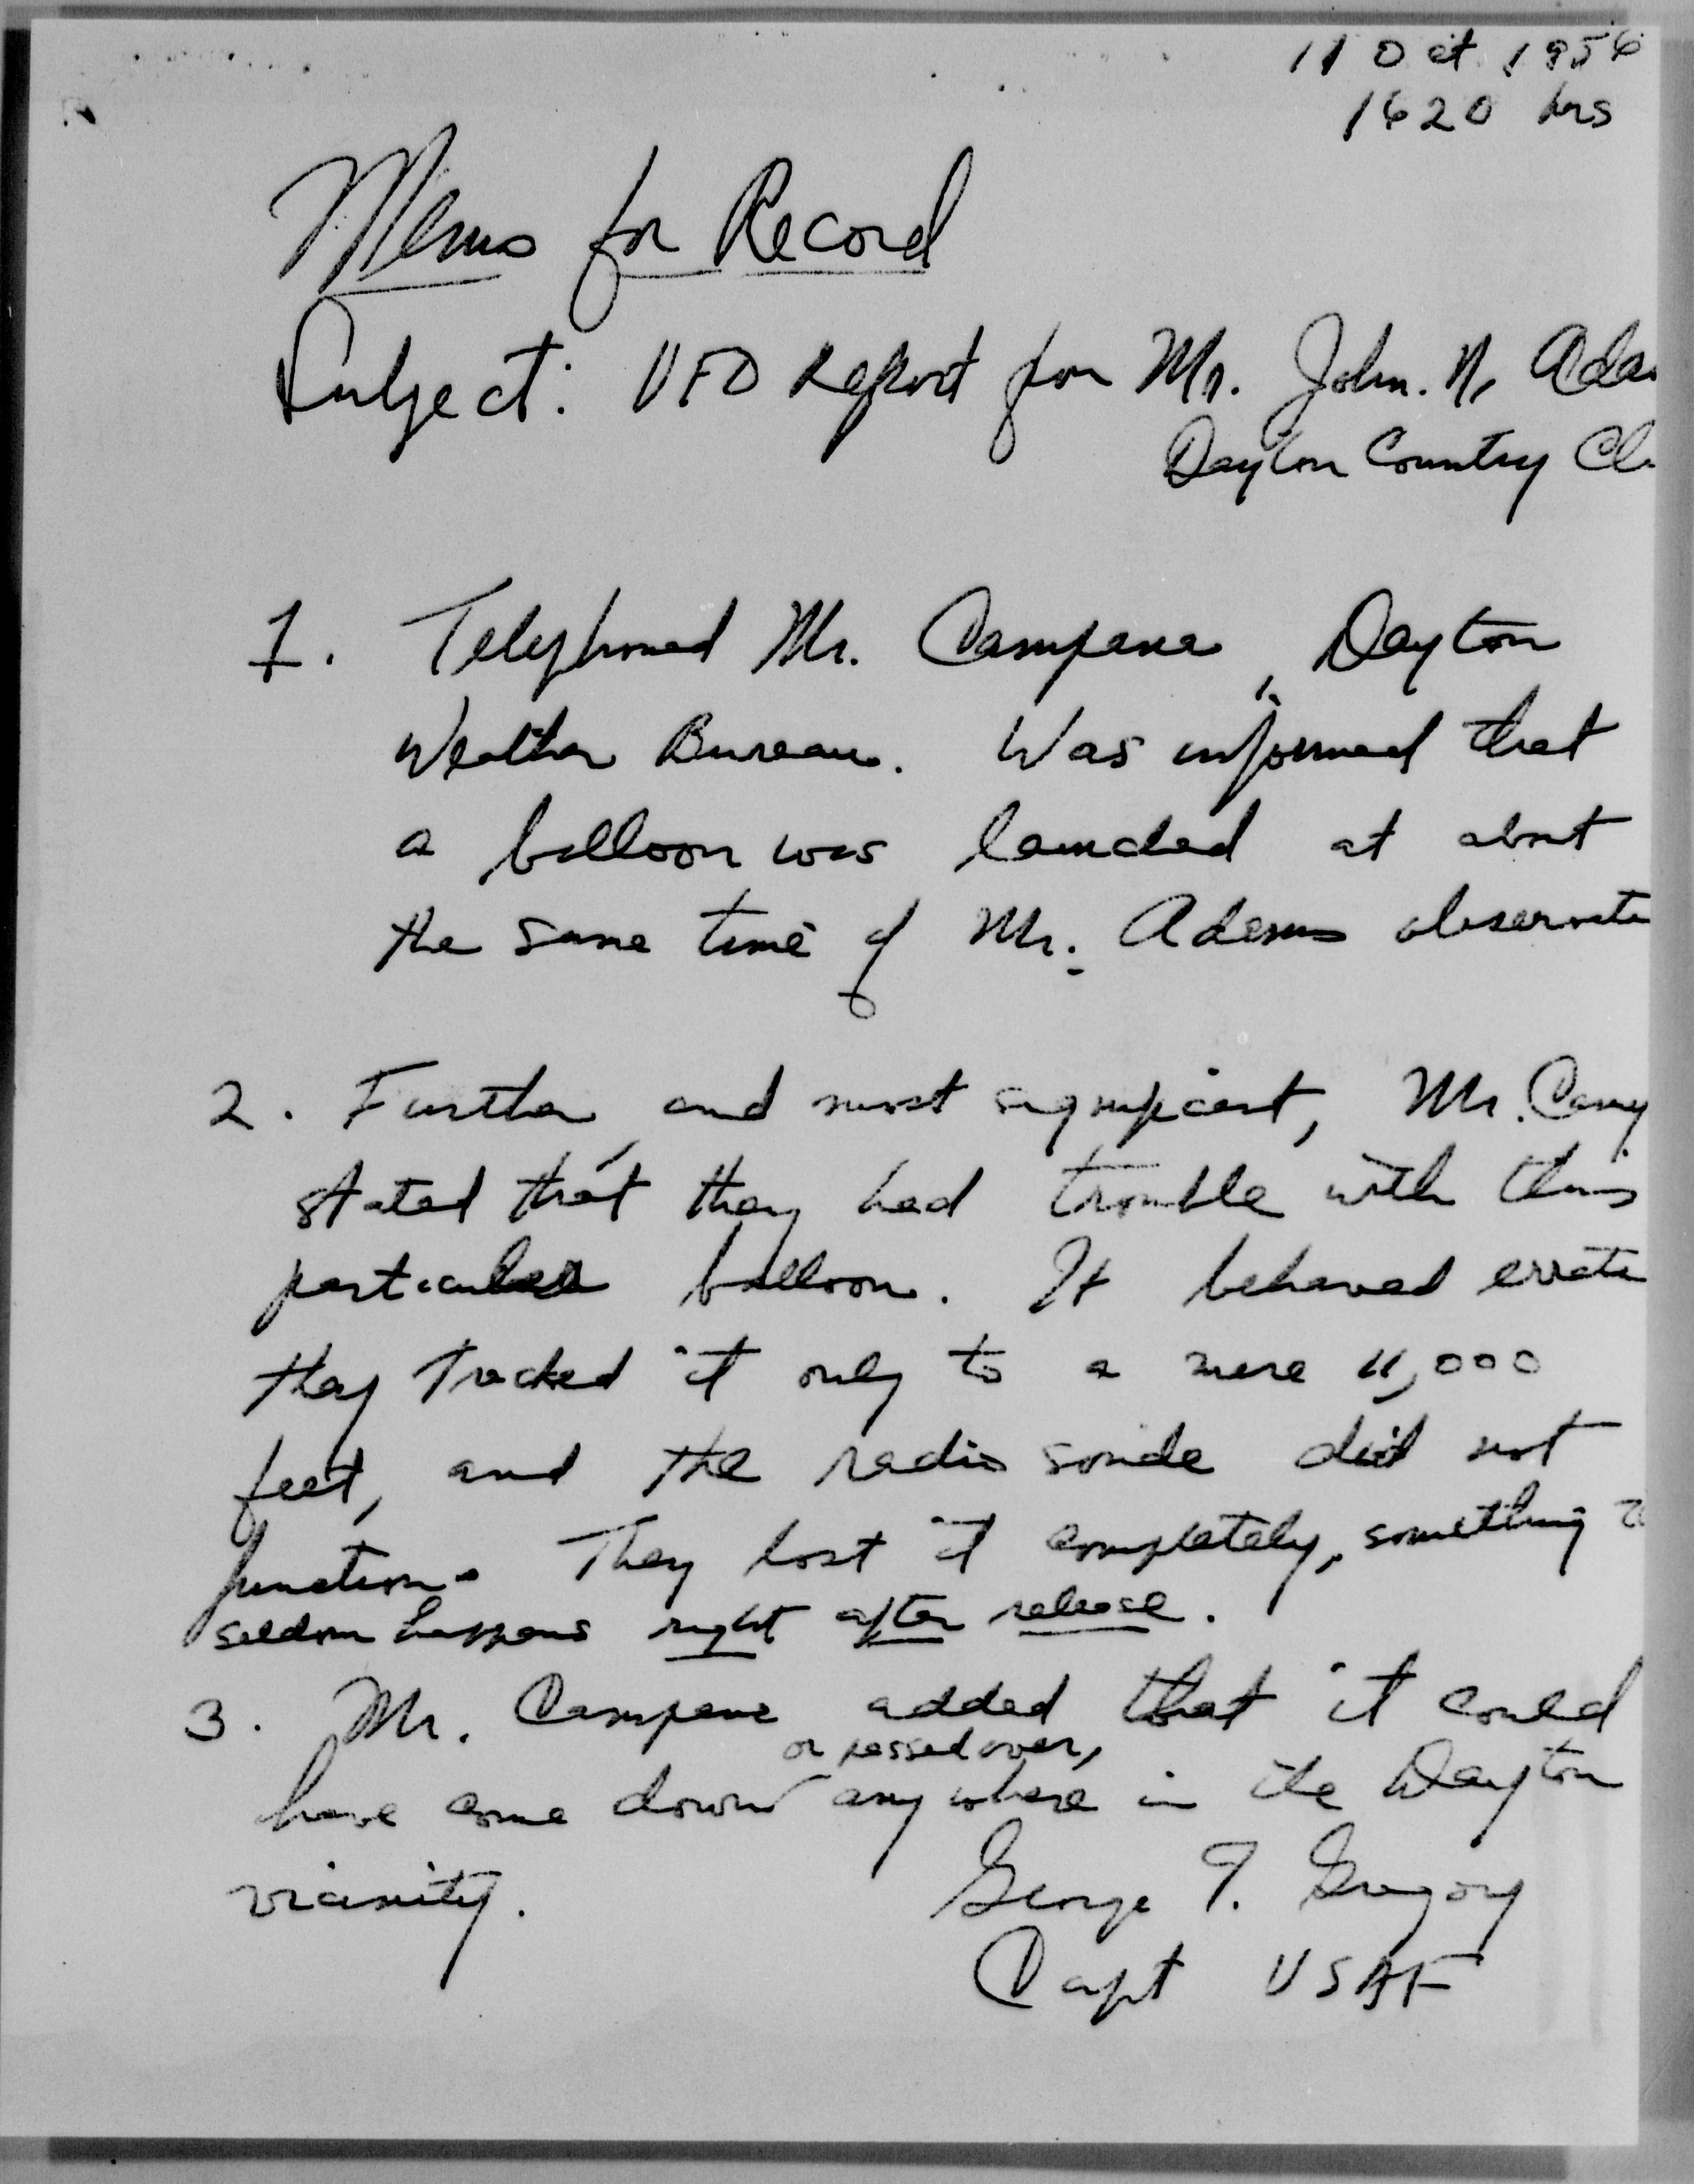 11 Oct 1956
1620 hrs
Memo for Record
Subject: UFO Report from Mr. John. N. Ada
Dayton Country Cl
1. Telephoned Mr. Campana, Dayton
Weather Bureau. Was informed that
a balloon was launched at about
the same time of Mr. Adams observati
2. Further, and most significant, Mr. Camp
stated that they had trouble with this
particular balloon. It behaved errati
they tracked it only to a mere 11,000
feet, and the radio sonde did not
function. They lost it completely, something
seldom happens right after release.
3. Mr. Campana added that it could
or passed over,
have come down anywhere in the Dayton
vicinity.
George T. Gregory
Capt USAF